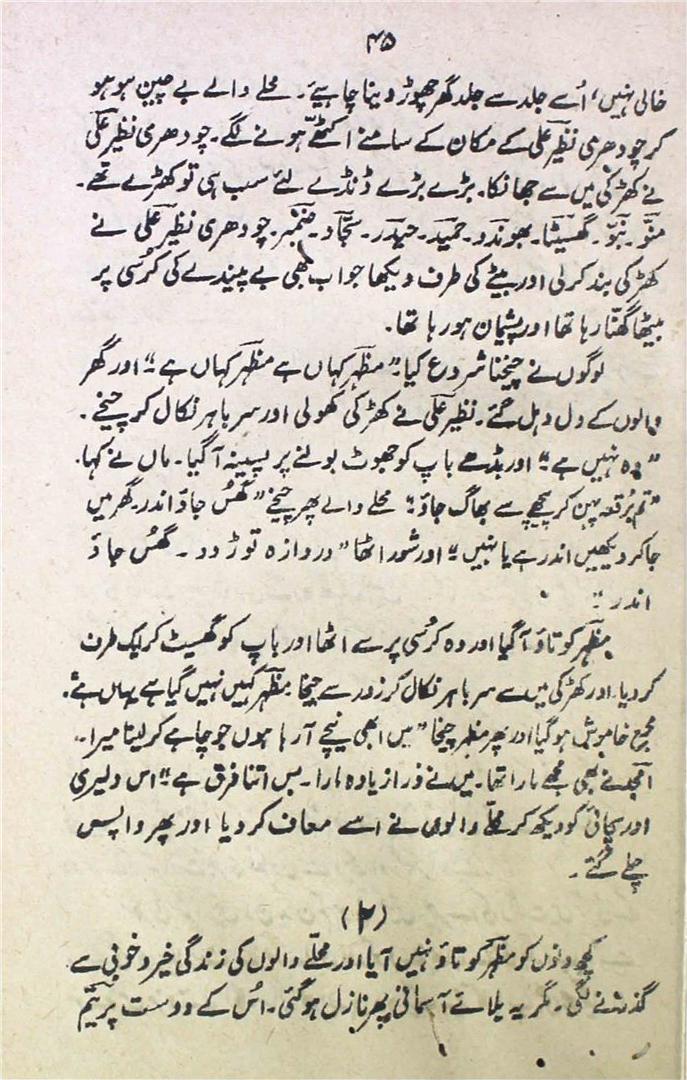 ۴۵
خالی نہیں، اُسے جلد سے جلد گھر چھوڑ دینا چاہیئے۔ محلے والے بے چین ہو ہو
کر چودھری نظیر علی کے مکان کے سامنے اکٹھے ہونے لگے۔ چودھری نظیر علی
نے کھڑکی میں سے جھانکا۔ بڑے بڑے ڈنڈے لئے سب ہی تو کھڑے تھے۔
منّو۔ ببّو۔ گھسیٹا۔ بھوندو۔ حمید۔ حیدر۔ سجّاد۔ ضنمبر۔ چودھری نظیر علی نے
کھڑکی بند کر لی اور بیٹے کی طرف دیکھا جو اب بھی بے پیندے کی کُرسی پر
بیٹھا گھنّا رہا تھا اور پشیمان ہو رہا تھا۔
لوگوں نے چیخنا شروع کیا۔" مظہر کہاں ہے مظہر کہاں ہے" اور گھر
والوں کے دل دہل گئے۔ نظیر علی نے کھڑکی کھولی اور سر باہر نکال کر چیخے۔
"وہ نہیں ہے" اور بڈھے باپ کو جھوٹ بولنے پر پسینہ آ گیا۔ ماں نے کہا۔
"تم بُرقعہ پہن کر پیچھے سے بھاگ جاؤ" محلے والے پھر چیخے "گھُس جاؤ اندر۔ گھر میں
جا کر دیکھیں اندر ہے یا نہیں" اور شور اٹھا "دروازہ توڑ دو۔ گھُس جاؤ
اندر"
مظہر کو تاؤ آ گیا اور وہ کُرسی پر سے اٹھا اور باپ کو گھسیٹ کر ایک طرف
کر دیا۔ اور کھڑکی میں سے سر باہر نکال کر زور سے چیخا۔ مظہر کہیں نہیں گیا ہے یہاں ہے۔
مجمع خاموش ہو گیا اور پھر مظہر چیخا "میں ابھی نیچے آ رہا ہوں جو چاہے کر لینا میرا۔
امجد نے بھی مجھے مارا تھا۔ میں نے ذرا زیادہ مارا۔ بس اتنا فرق ہے" اس دلیری
اور سچائی کو دیکھ کر محلّے والوں نے اسے معاف کر دیا اور پھر واپس
چلے گئے۔
(۲)
کچھ دنوں کو مظہر کو تاؤ نہیں آیا اور محلّے والوں کی زندگی خیر و خوبی سے
گذرنے لگی۔ مگر یہ بلائے آسمانی پھر نازل ہو گئی۔ اُس کے دوست پریتم